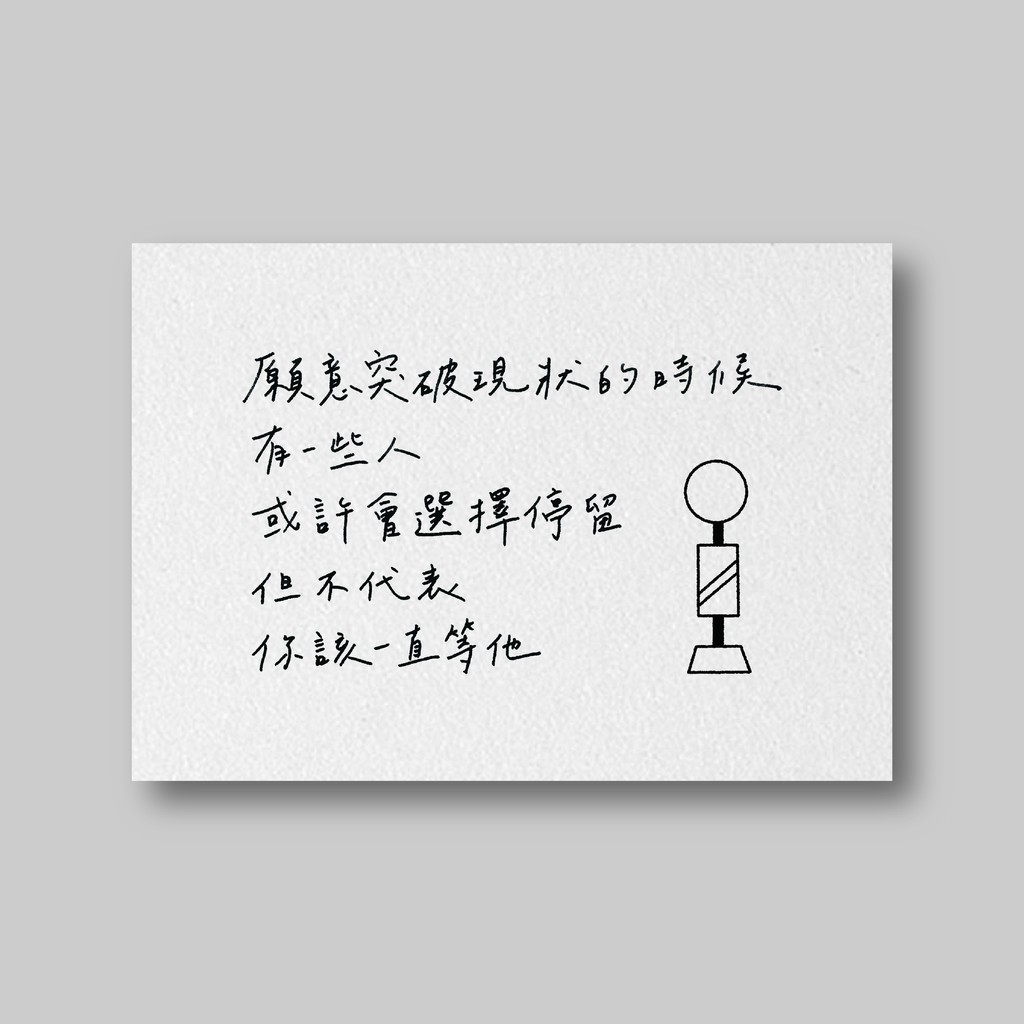 願意突破現狀的時候
有一些人
或許會選擇停留
但不代表
你該一直等他